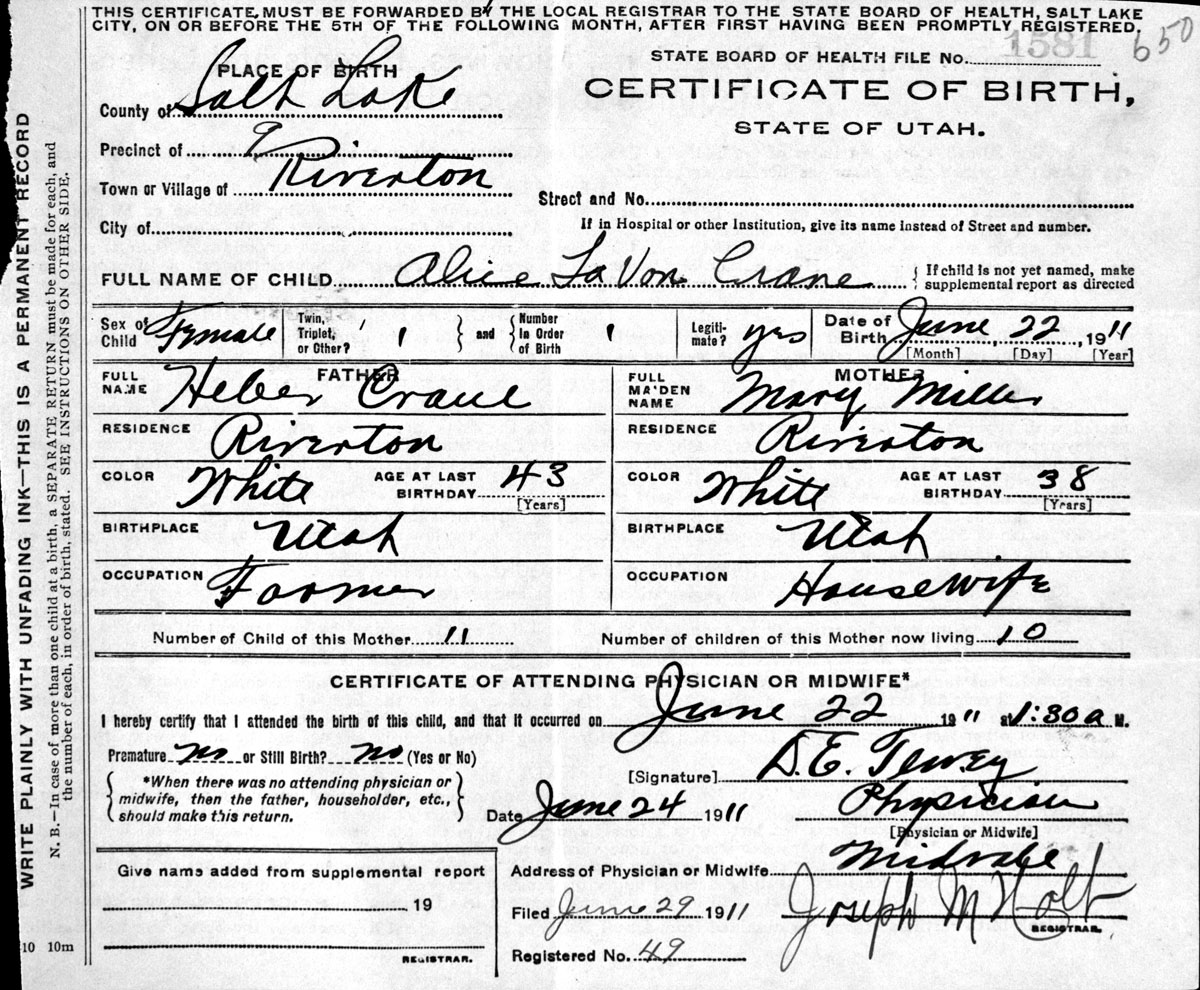 THIS CERTIFICATE, MUST BE FORWARDED BY THE LOCAL REGISTRAR TO THE STATE BOARD OF HEALTH, SALT LAKE
CITY, ON OR BEFORE THE 5TH OF THE FOLLOWING MONTH, AFTER FIRST HAVING BEEN PROMPTLY REGISTERED.
650
STATE BOARD OF HEALTH FILE No. 1581
PLACE OF BIRTH
CERTIFICATE OF BIRTH,
STATE OF UTAH.
County of Salt Lake
Precinct of
Town or Village of Riverton
Street and No.
City of
If in Hospital or other Institution, give its name instead of Street and number.
FULL NAME OF CHILD Alice LaVon Crane { If child is not yet named, make supplemental report as directed
Sex of Child Female Twin, Triplet, or Other? 1 } and { Number in Order of Birth 1 Legiti-mate? yes Date of Birth June 22, 1911
[Month] [Day] [Year]
FATHER MOTHER
FULL NAME Heber Crane FULL MAIDEN NAME Mary Miller
RESIDENCE Riverton RESIDENCE Riverton
COLOR White AGE AT LAST BIRTHDAY 43 [Years] COLOR White AGE AT LAST BIRTHDAY 38 [Years]
BIRTHPLACE Utah BIRTHPLACE Utah
OCCUPATION Farmer OCCUPATION Housewife
Number of Child of this Mother 11 Number of children of this Mother now living 10
CERTIFICATE OF ATTENDING PHYSICIAN OR MIDWIFE*
I hereby certify that I attended the birth of this child, and that it occurred on June 22 1911 at 1:30 a M.
Premature no or Still Birth? no (Yes or No)
[Signature] D.E. Tewey
{ *When there was no attending physician or midwife, then the father, householder, etc., should make this return. }
Date June 24 1911 Physician
[Physician or Midwife]
Give name added from supplemental report
, 19
REGISTRAR.
Address of Physician or Midwife Midvale
Filed June 29 1911 Joseph M Holt
REGISTRAR.
Registered No. 49
10 10m
WRITE PLAINLY WITH UNFADING INK—THIS IS A PERMANENT RECORD
N. B.—In case of more than one child at a birth, a SEPARATE RETURN must be made for each, and
the number of each, in order of birth, stated. SEE INSTRUCTIONS ON OTHER SIDE.